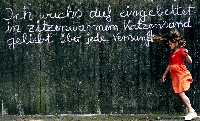 Ich wuchs auf eingebettet
in zitzenwarmem Katzensand
geliebt über jede Vernunft